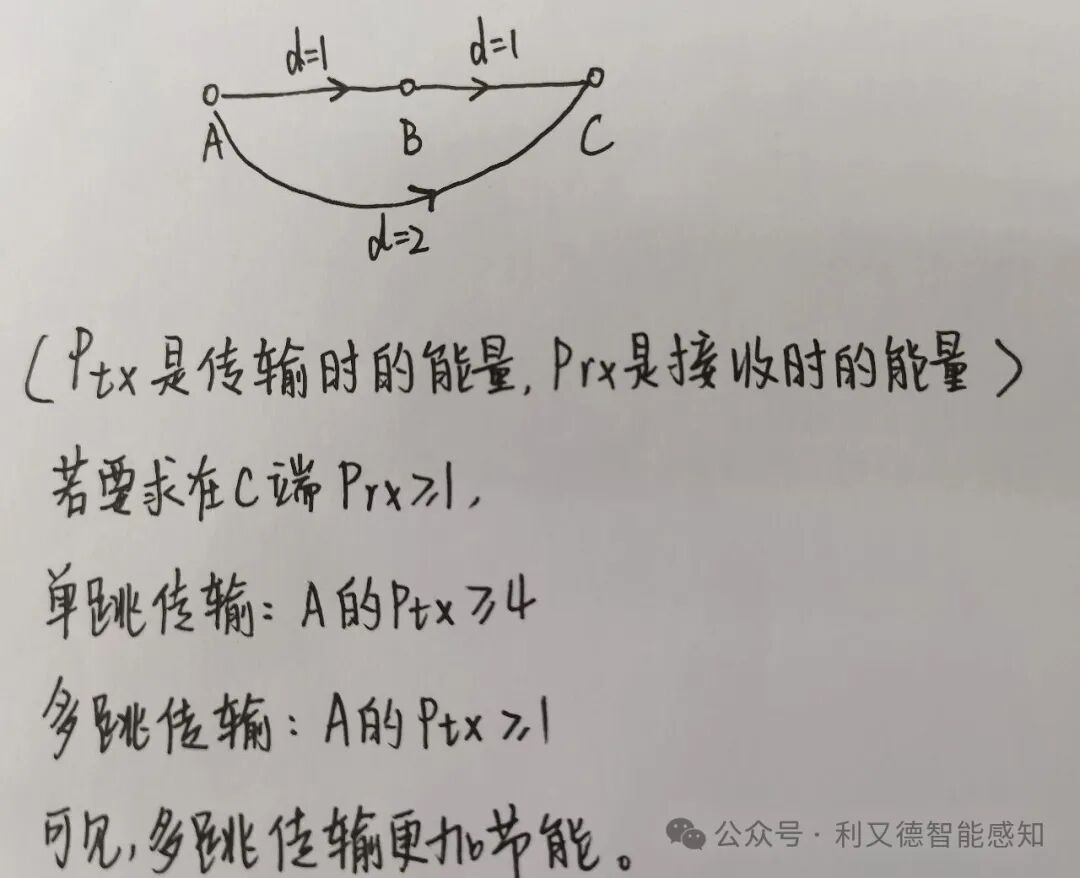 d=1
d=1
A
B
C
d=2
(Ptx是传输时的能量,Prx是接收时的能量)
若要求在C端 Prx≥1,
单跳传输: A的Ptx≥4
多跳传输: A的Ptx≥1
可见,多跳传输更加节能。
公众号·利又德智能感知